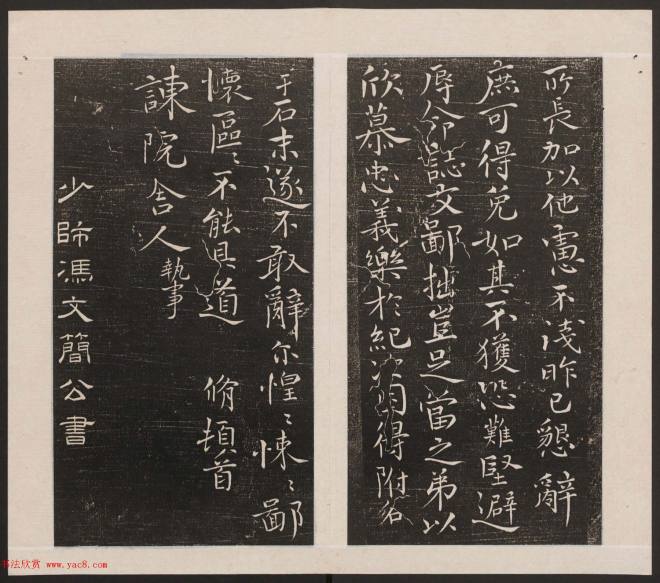 所長加以他慮不淺昨已懇辭
庶可得免如其不獲恐難堅避
辱命誌文鄙拙豈足當之弟以
欣慕忠義樂於紀次自得附名
于石末遂不敢辭尔惶〻悚〻鄙
懷區〻不能具道 脩頓首
諫院舍人執事
少師馮文簡公書
书法欣赏 www.yac8.com